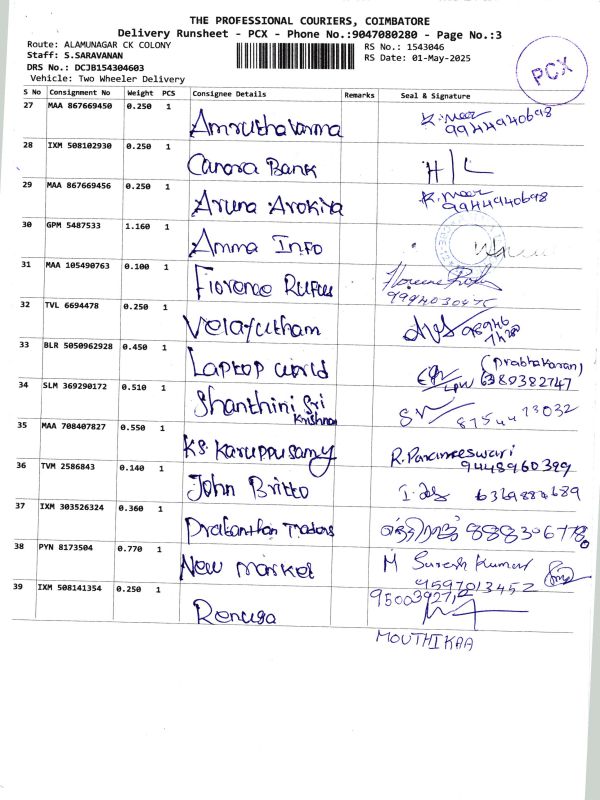 THE PROFESSIONAL COURIERS, COIMBATORE
Delivery Runsheet - PCX - Phone No.:9047080280 - Page No.:3
Route: ALAMUNAGAR CK COLONY
RS No.: 1543046
Staff: S.SARAVANAN
RS Date: 01-May-2025
DRS No.: DCJB154304603
Vehicle: Two Wheeler Delivery
PCX
S No Consignment No Weight PCS Consignee Details Remarks Seal & Signature
27 MAA 867669450 0.250 1 Amruthavarma
9944940698
28 IXM 508102930 0.250 1 Canara Bank H/L
29 MAA 867669456 0.250 1 Aruna Arokiya
9944940698
30 GPM 5487533 1.160 1 Amma Info
31 MAA 105490763 0.100 1 Florence Rufus
32 TVL 6694478 0.250 1 Velayutham
33 BLR 5050962928 0.450 1 Laptop world (Prabhakaran)
6380382747
34 SLM 369290172 0.510 1 Shanthini Sri
Krishnan
35 MAA 708407827 0.550 1 KS. Karuppusamy R. Parameeswari
9448960399
36 TVM 2586843 0.140 1 John Britto
37 IXM 303526324 0.360 1 Prabanthan Traders
38 PYN 8173504 0.770 1 New market M Suresh Kumar
9597013452
39 IXM 508141354 0.250 1 Renuga
MOUTHIKAA